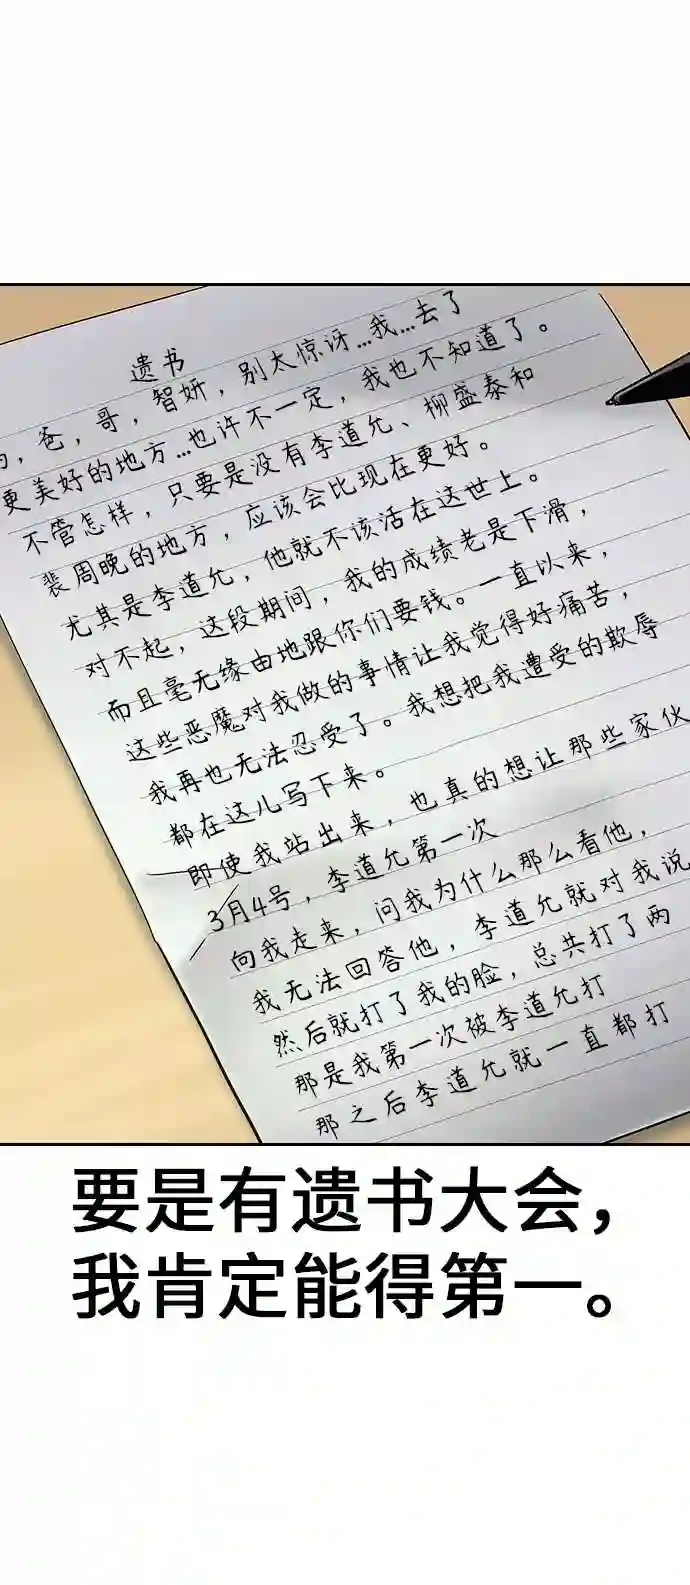 遗书
妈，爸，哥，智妍，别太惊讶...我...去了
更美好的地方...也许不一定，我也不知道了。
不管怎样，只要是没有李道允、柳盛泰和
裴周晚的地方，应该会比现在更好。
尤其是李道允，他就不该活在这世上。
对不起，这段期间，我的成绩老是下滑，
而且毫无缘由地跟你们要钱。一直以来，
这些恶魔对我做的事情让我觉得好痛苦，
我再也无法忍受了。我想把我遭受的欺辱
都在这儿写下来。
即使我站出来，也真的想让那些家伙
3月4号，李道允第一次
向我走来，问我为什么那么看他，
我无法回答他，李道允就对我说
然后就打了我的脸，总共打了两
那是我第一次被李道允打
那之后李道允就一直都打
要是有遗书大会，
我肯定能得第一。